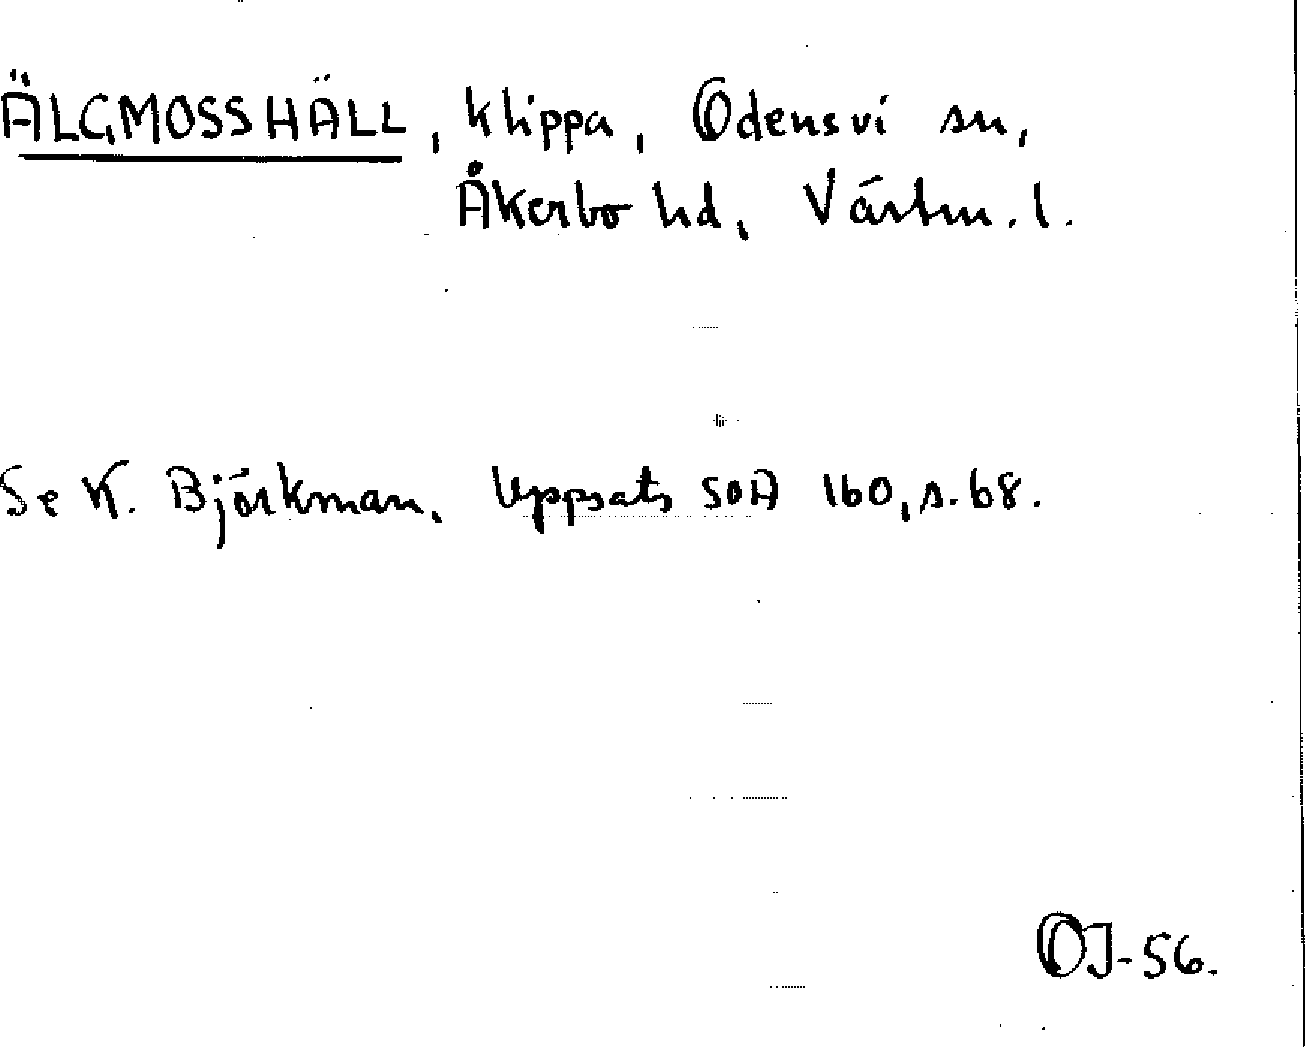 ÄLGMOSSHÄLL, klippa, Odensvi sn,
Åkerbo hd, Västm. l.
Se K. Björkman, Uppsats SOA 160, s. 68.
OJ-56.